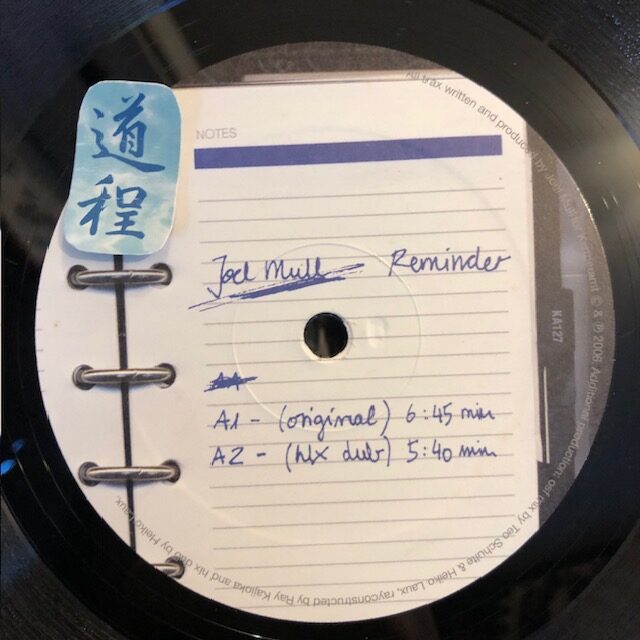 道程
NOTES
Joel Mull Reminder
A1 - (original) 6:45 min
A2 - (hlx dub) 5:40 min
KA127
All trax written and produced by Joel Mull
© & ℗ 2006 Additional production: osf mix by Teo Schulte & Heiko Laux, rayconstructed by Ray Kajioka and hlx dub by Heiko Laux.